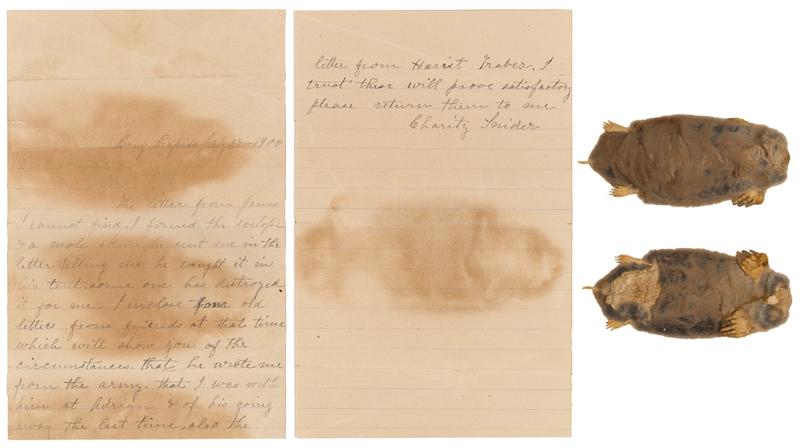 Long Rapids July 18 1900
The letter from James
I cannot find. I found the
& a mole skin he sent me in the
letter telling me he caught it in
his tent. some one has distroyed
it for me. I enclose old
letters from friends at that time
which will show you of the
circumstances. that he wrote me
from the army. that I was with
him at Adrian & of his going
away the last time, also the
letter from Harriet Graber. I
trust these will prove satisfactory
please return them to me
Charity Snider